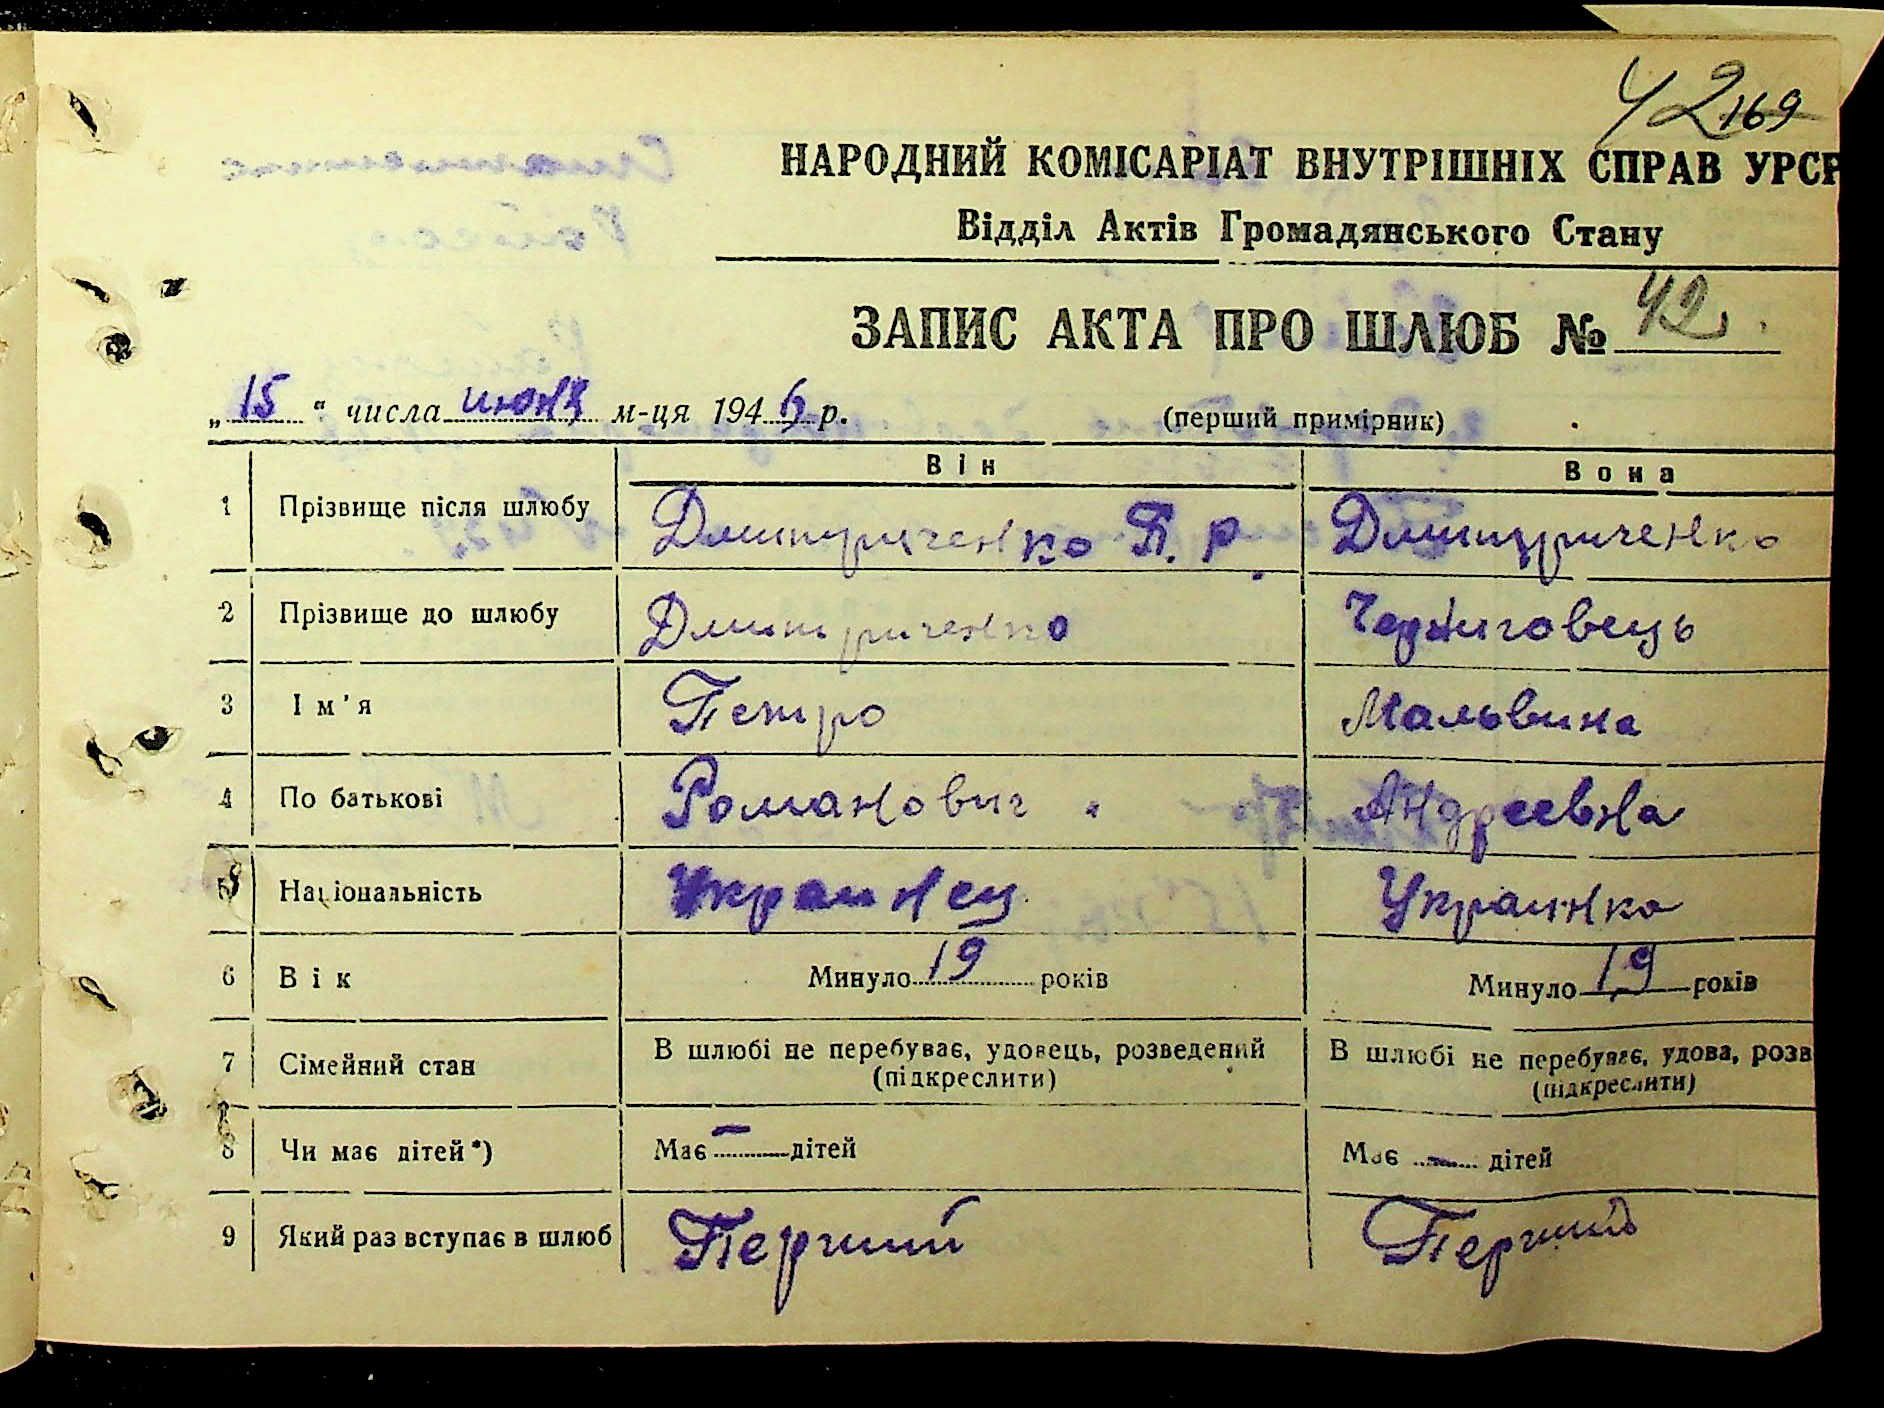 42 169
НАРОДНИЙ КОМІСАРІАТ ВНУТРІШНІХ СПРАВ УРСР
Відділ Актів Громадянського Стану
ЗАПИС АКТА ПРО ШЛЮБ № 42
„15“ числа июня м-ця 1946 р. (перший примірник)
Він Вона
1 Прізвище після шлюбу Дмитриченко П. Р. Дмитриченко
2 Прізвище до шлюбу Дмитриченко Черниговець
3 Ім'я Петро Мальвина
4 По батькові Романович Андреевна
5 Національність Украинец Украинка
6 Вік Минуло 19 років Минуло 19 років
7 Сімейний стан В шлюбі не перебуває, удовець, розведений В шлюбі не перебуває, удова, розв
(підкреслити) (підкреслити)
8 Чи має дітей*) Має — дітей Має — дітей
9 Який раз вступає в шлюб Перший Перший